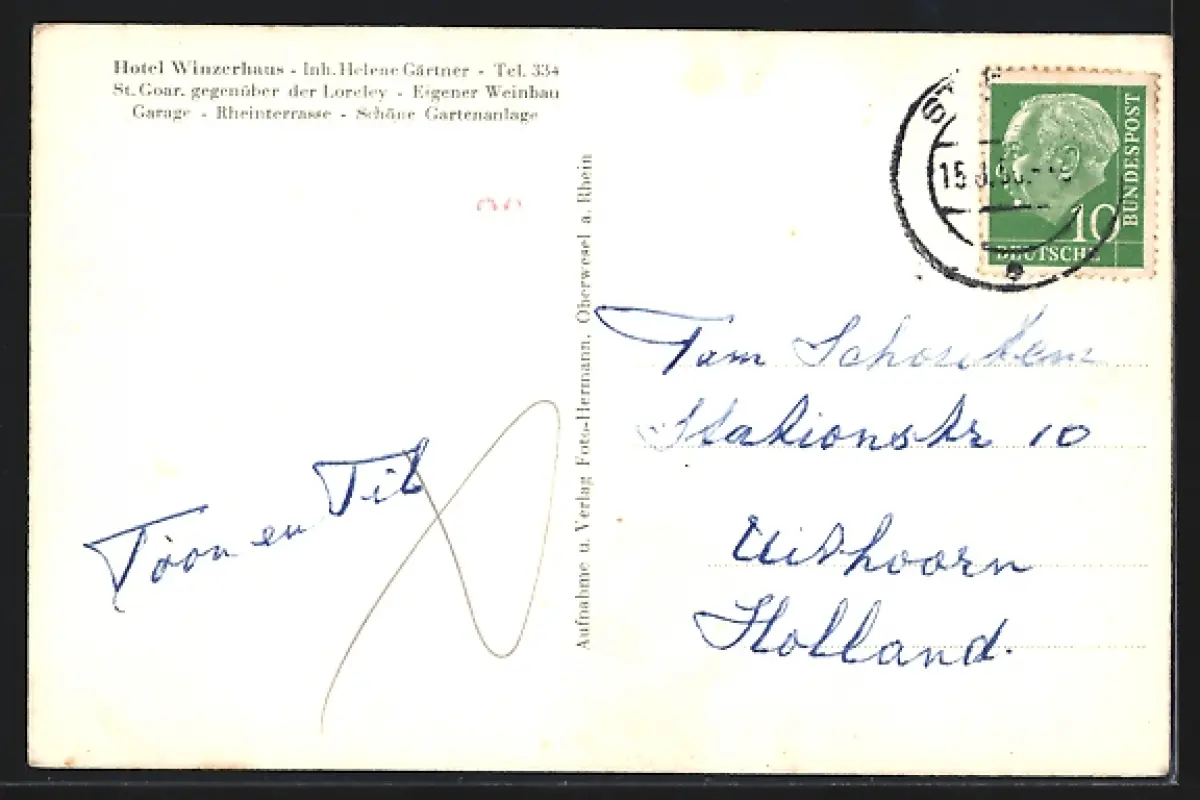 Hotel Winzerhaus - Inh. Helene Gärtner - Tel. 334
St. Goar, gegenüber der Loreley - Eigener Weinbau
Garage - Rheinterrasse - Schöne Gartenanlage
Toon en Til
Aufnahme u. Verlag Foto-Hermann, Oberwesel a. Rhein
10
DEUTSCHE
BUNDESPOST
Fam
Stationstr 10
Uithoorn
Holland.